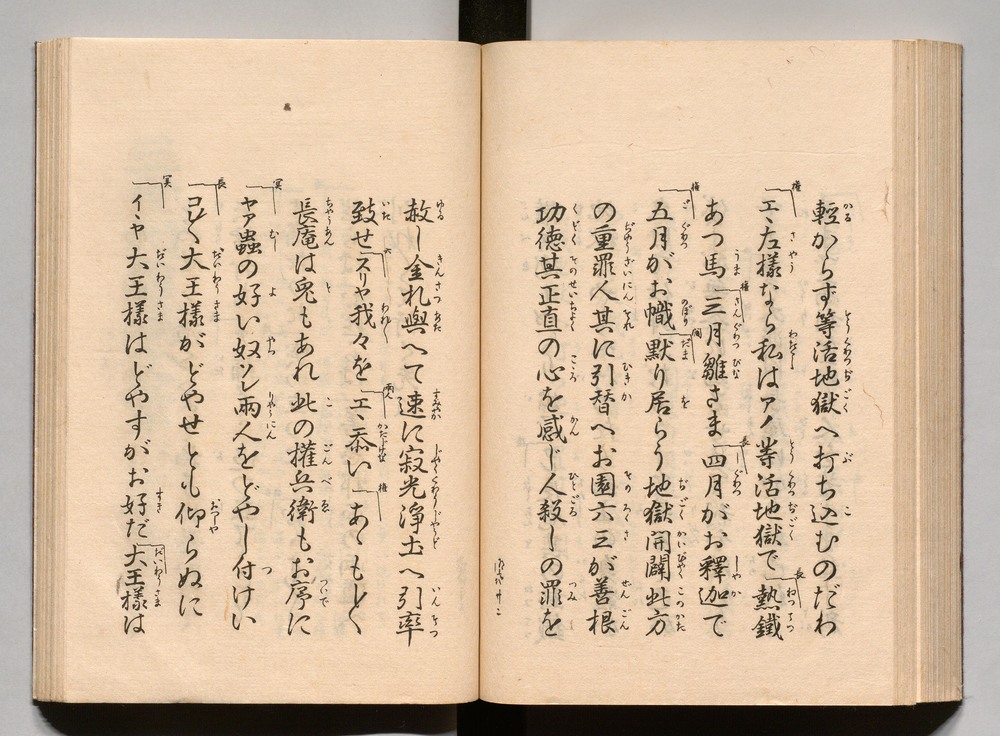 輕からず等活地獄へ打ち込むのだわ
權 エヽ左樣なら私はアノ等活地獄で 長 熱鐵
あつ馬 權 三月雛さま 長 四月がお釋迦で
權 五月がお幟 閻 默り居らう地獄開闢此方
の重罪人其に引替へお園六三が善根
功徳其正直の心を感じ人殺しの罪を
赦し金札與へて速に寂光淨土へ引率
致せ スリヤ我々を 兩人 エヽ忝い 權 あゝもし〱
長庵は兎もあれ此の權兵衛もお序に
冥 ヤア蟲の好い奴ソレ兩人をどやし付けい
長 コレ〱大王樣がどやせとも仰らぬに
冥 イヽヤ大王樣はどやすがお好だ 大王樣は